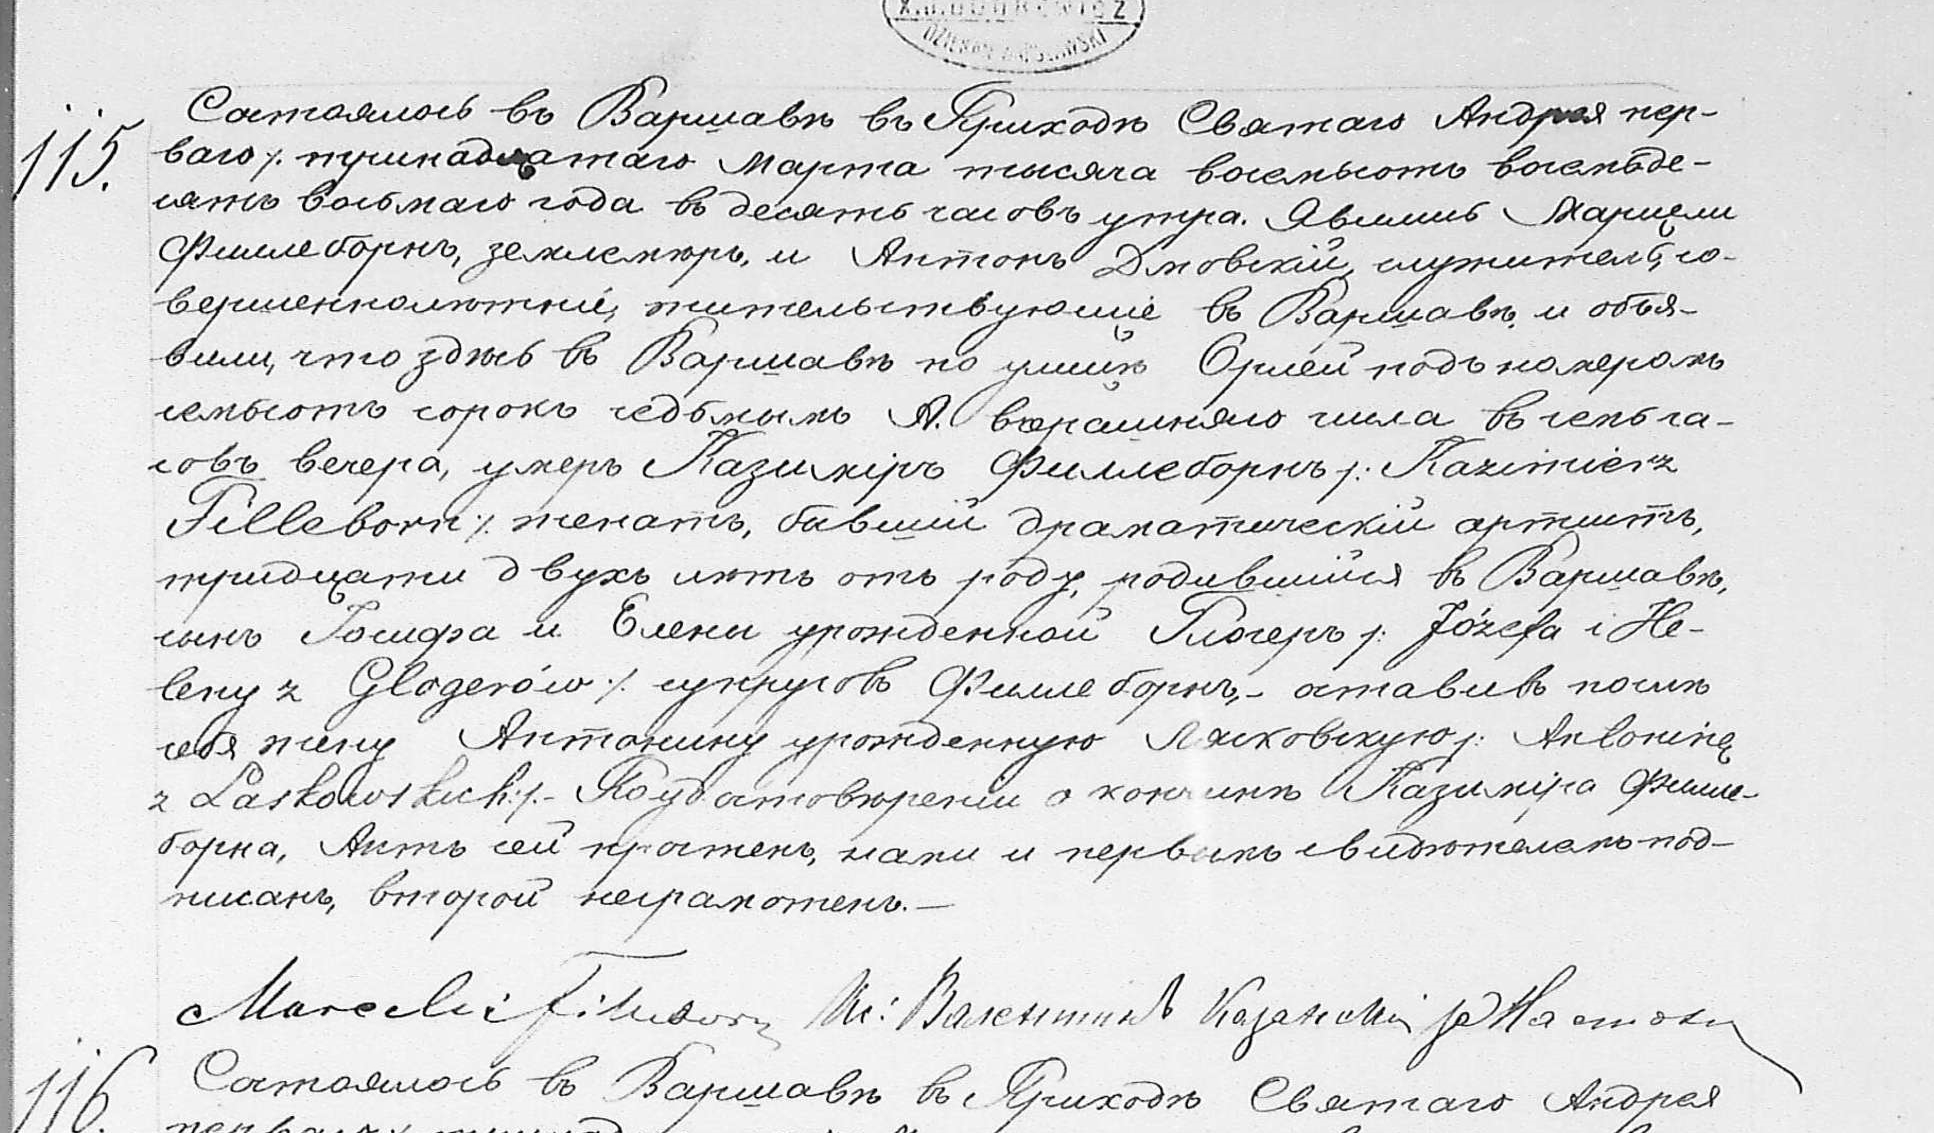 DZIEKAN
115.
Состоялось въ Варшавѣ въ Приходѣ Святаго Андрея пер-
ваго /. тринадцатаго Марта тысяча восемьсотъ восемьде-
сятъ восьмаго года въ десять часовъ утра. Явились Марцели
Филлеборнъ, землемѣръ, и Антонъ Дмовскій, служитель, со-
вершеннолѣтніе, жительствующіе въ Варшавѣ, и объя-
вили, что здѣсь въ Варшавѣ по улицѣ Орлей подъ номеромъ
семьсотъ сорокъ седьмымъ А. вчерашняго числа въ семь ча-
совъ вечера, умеръ Казимiръ Филлеборнъ /: Kazimierz
Filleborn /. женатъ, бывшій драматическій артистъ,
тридцати двухъ лѣтъ отъ роду, родившійся въ Варшавѣ,
сынъ Іосифа и Елены урожденной Глогеръ /: Józefa i He-
leny z Glogerów /. супруговъ Филлеборнъ, - оставивъ послѣ
себя жену Антонину урожденную Лясковскую /: Antoninę
z Laskowskich :/. - По удостовѣреніи о кончинѣ Казимiра Филле-
борна, Актъ сей прочтенъ, нами и первымъ свидѣтелемъ под-
писанъ, второй неграмотенъ. —
Marceli Filleborn Кс: Валентинъ
116.
Состоялось въ Варшавѣ въ Приходѣ Святаго Андрея